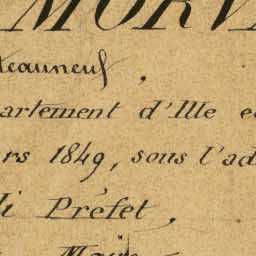 MORV
teauneuf.
artement d'Ille e
rs 1849, sous l'ad
li Préfet,
Maire